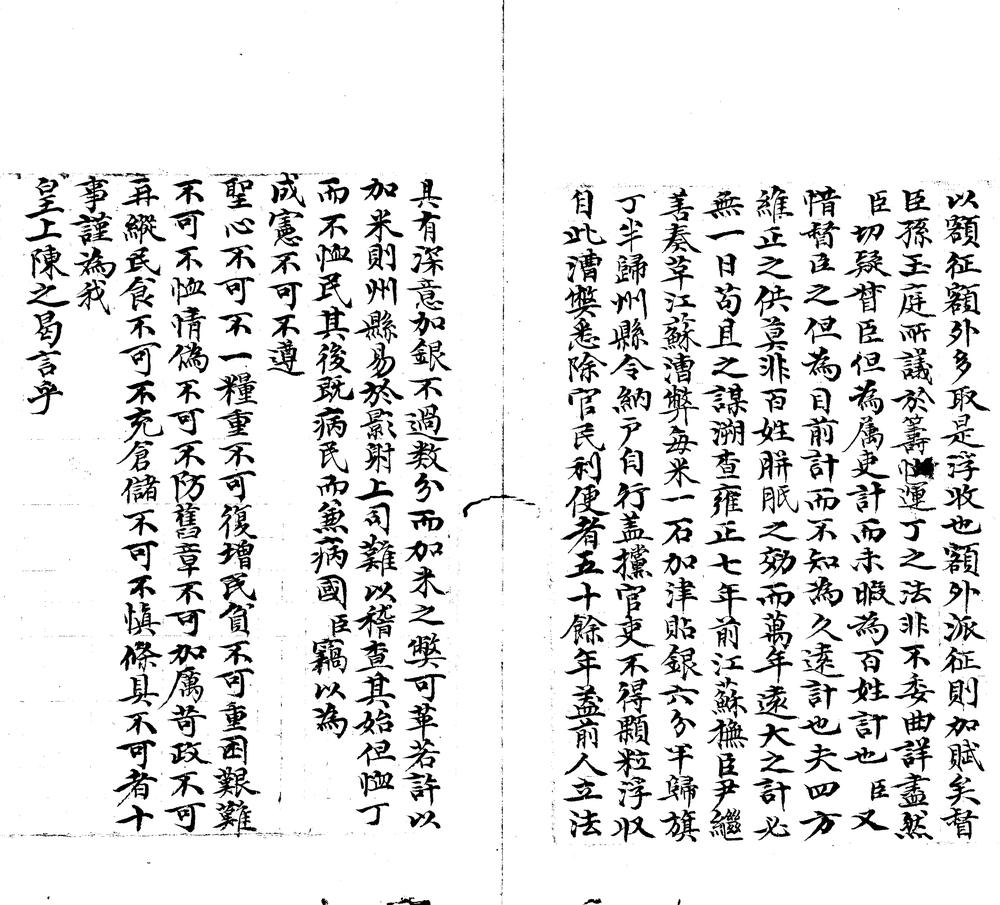 以額征額外多取是浮收也額外派征則加賦矣督
臣孫玉庭所議於籌恤運丁之法非不委曲詳盡然
臣切疑督臣但為属吏計而未暇為百姓計也臣又
惜督臣之但為目前計而不知為久遠計也夫四方
維正之供莫非百姓胼胝之効而萬年遠大之計必
無一日苟且之謀溯查雍正七年前江蘇撫臣尹繼
善奏革江蘇漕弊每米一石加津貼銀六分半歸旗
丁半歸州縣令納户自行盖攩官吏不得顆粒浮收
自此漕弊悉除官民利便者五十餘年葢前人立法
具有深意加銀不過数分而加米之弊可革若許以
加米則州縣易於影射上司難以稽查其始但恤丁
而不恤民其後既病民而兼病國臣竊以為
成憲不可不遵
聖心不可不一糧重不可復增民負不可重困艱難
不可不恤情偽不可不防舊章不可加厲苛政不可
再縱民食不可不充倉儲不可不慎條具不可者十
事謹為我
皇上陳之曷言乎